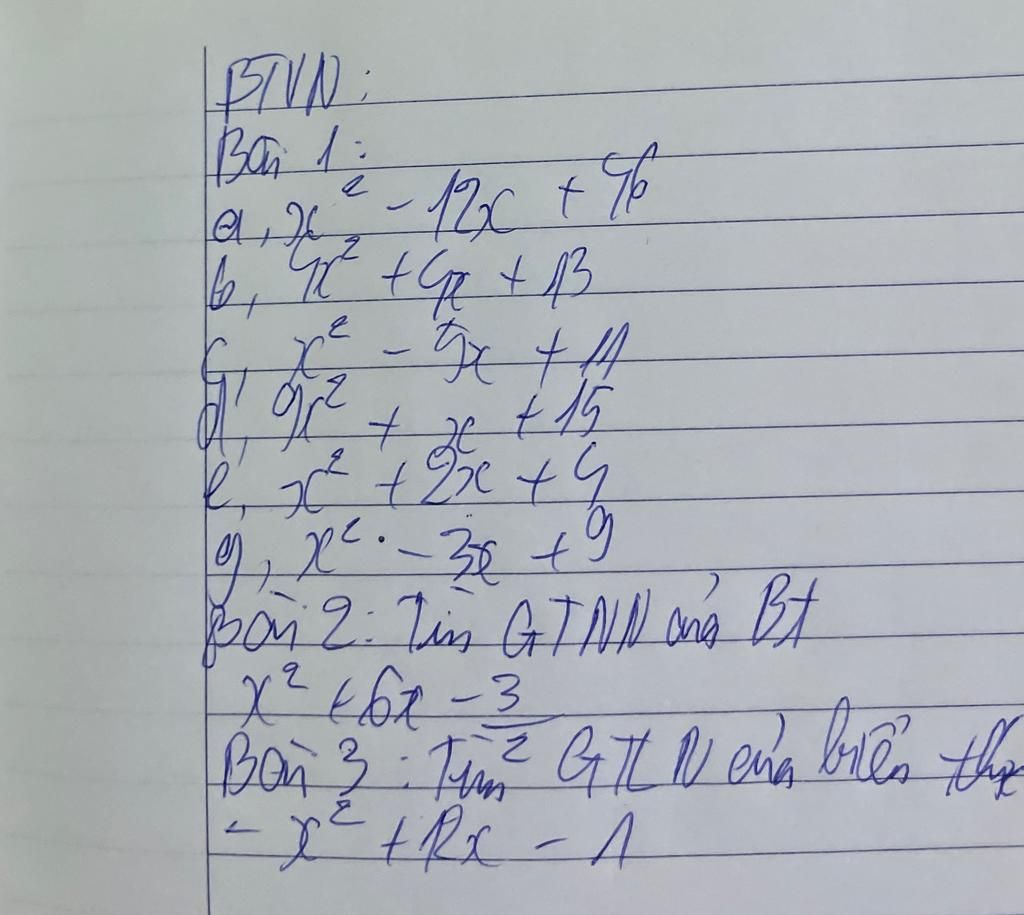 BTVN:
Bài 1:
a, x² - 12x + 46
b, 4x² + 4x + 13
c, x² - 5x + 11
d, 9x² + x + 15
e, x² + 2x + 4
g, x² - 3x + 9
Bài 2: Tìm GTNN của Bt
x² + 6x - 3/2
Bài 3: Tìm GTLN của biểu thức
- x² + 12x - 1